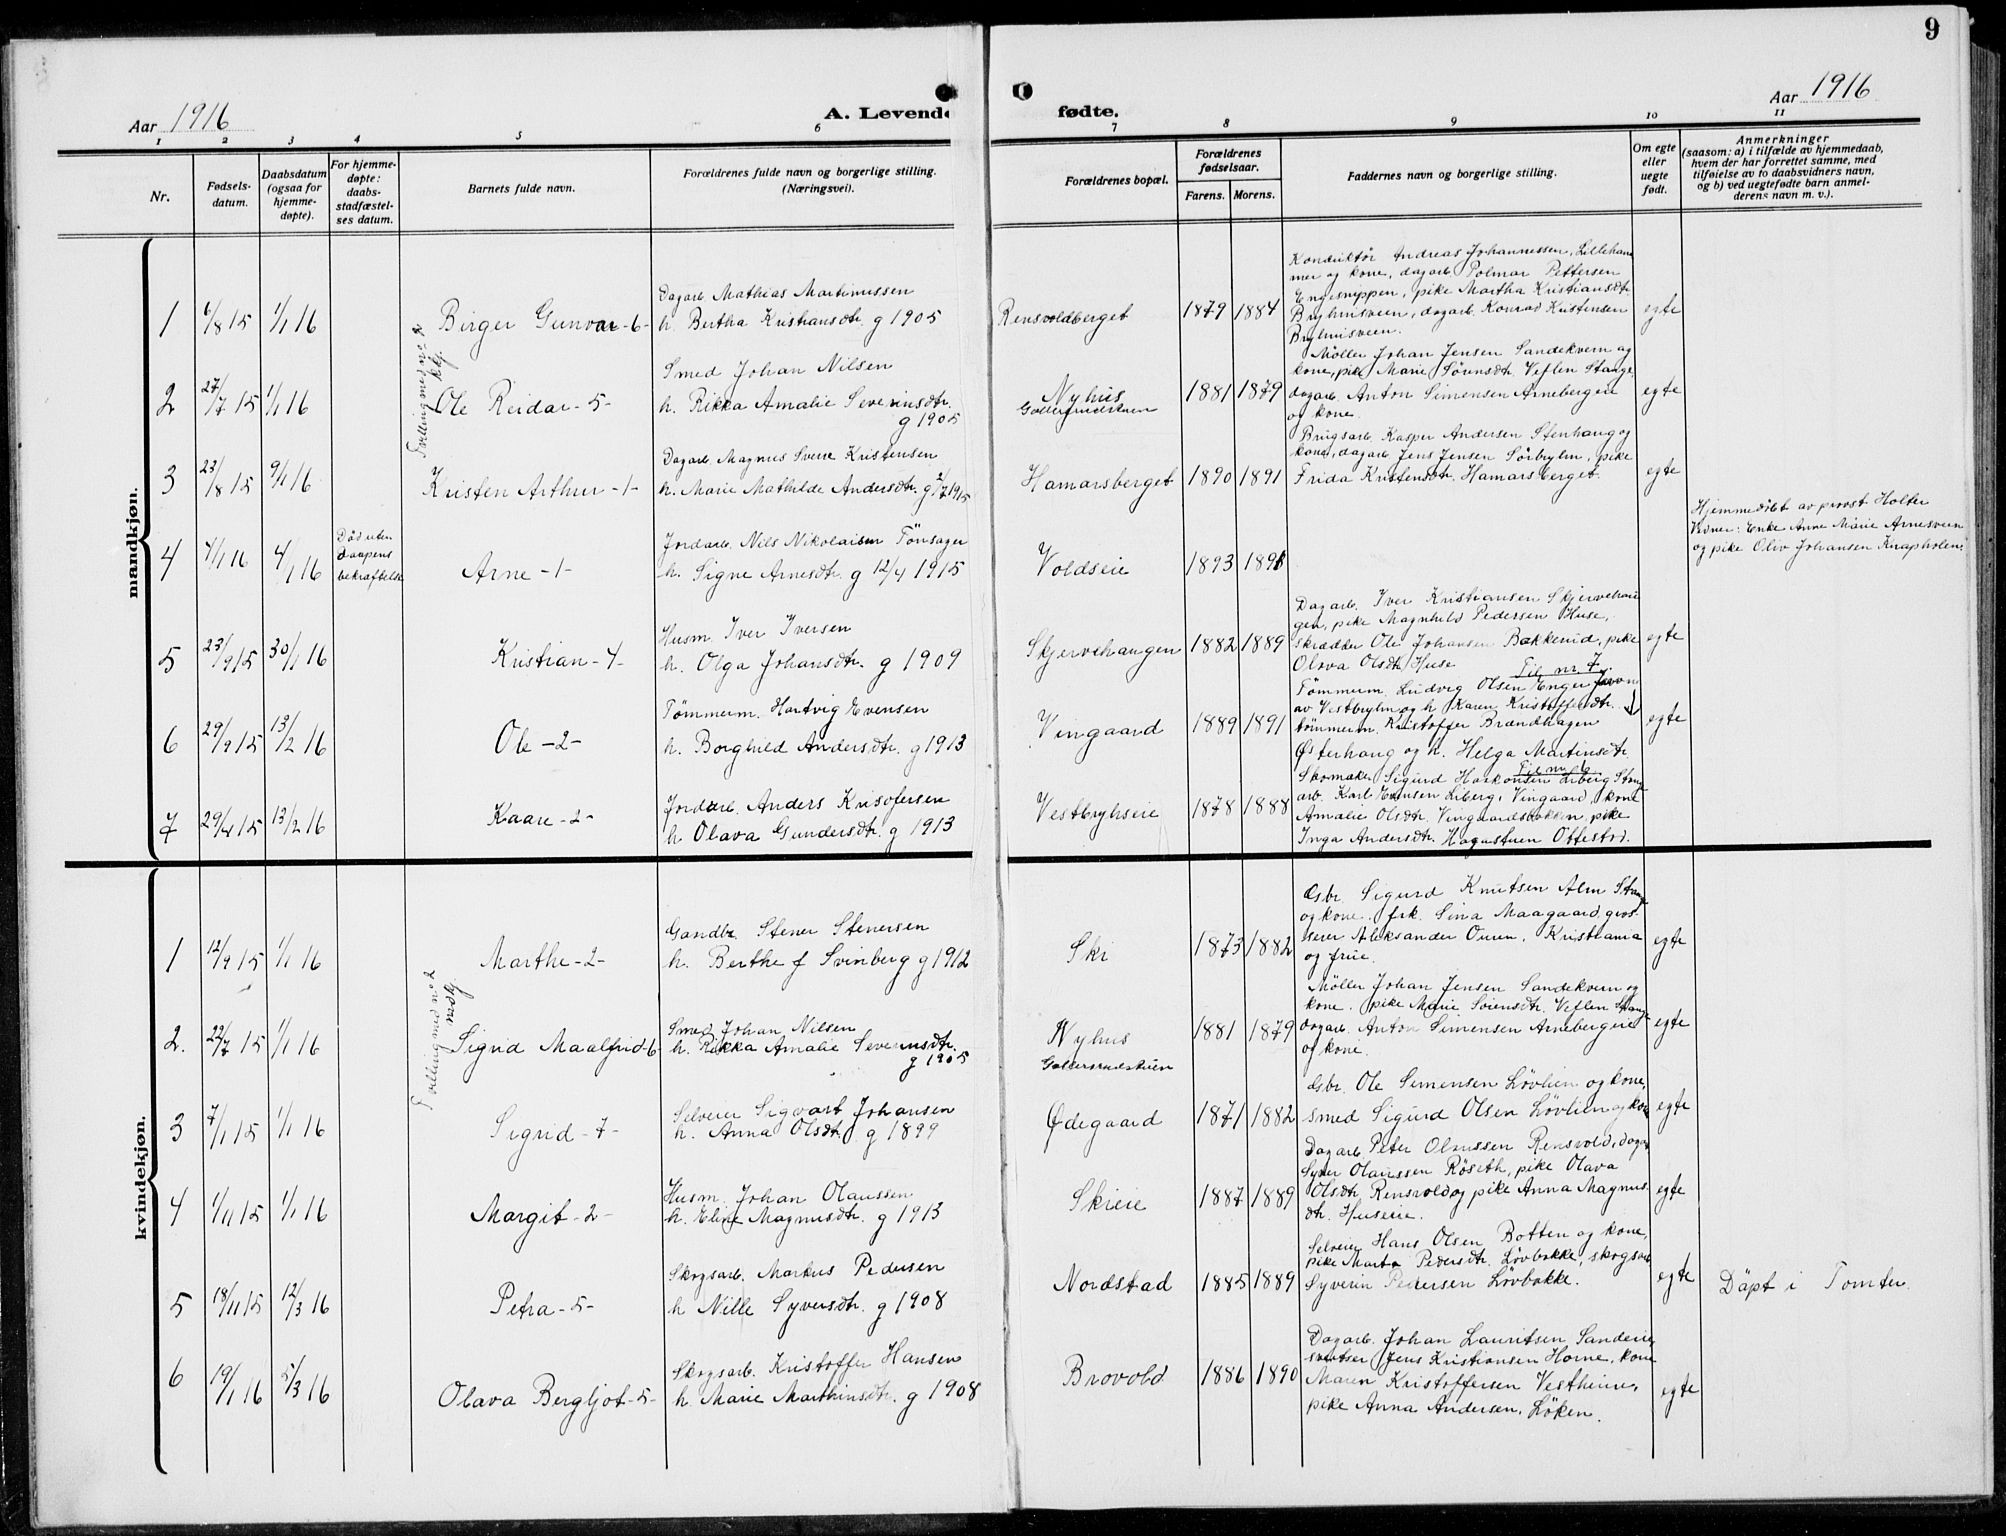 9
Aar 1916
A. Levende
fødte.
Aar 1916
1 2 3 4 5 6 7 8 9 10 11
Nr.
Fødsels-
datum.
Daabsdatum
(ogsaa for
hjemme-
døpte).
For hjemme-
døpte:
daabs-
stadfæstel-
ses datum.
Barnets fulde navn.
Forældrenes fulde navn og borgerlige stilling.
(Næringsvei).
Forældrenes bopæl.
Forældrenes
fødselsaar.
Farens. Morens.
Faddernes navn og borgerlige stilling.
Om egte
eller
uegte
født.
Anmerkninger
(saasom: a) i tilfælde av hjemmedaab,
hvem der har forrettet samme, med
tilføielse av to daabsvidners navn,
og b) ved uegtefødte barn anmel-
derens navn m. v.).
mandkjøn.
1 6/8 15 1/1 16 Birger Gunvar -6-
Dagarb. Mathias Martinussen
h. Bertha Kristiansdtr. g 1905
Rensvoldberget 1879 1884
Konduktör Andreas Johannessen, Lilleham
mer og kone, dagarb. Polmar Pettersen
Engesnippen, pike Martha Kristiansdtr.
Bryhnisveen, dagarb. Konrad Kristensen
Bryhnisveen.
egte
Tvilling med no 2
kkj.
2 27/7 15 1/1 16 Ole Reidar -5-
Smed Johan Nilsen
h. Rikka Amalie Severinsdtr.
g 1905
Nyhus
1881 1879
Möller Johan Jensen Sandekvern og
kone, pike Marie Sörensdtr. Veflen Stange,
dagarb. Anton Simensen Arnebergeie
og kone.
egte
3 23/8 15 9/1 16 Kristen Arthur -1-
Dagarb. Magnus Sverre Kristensen
h. Marie Mathilde Andersdtr. g 2/7 1915
Hamarsberget 1890 1891
Brugsarb. Kasper Andersen Stenhaug og
kone, dagarb. Jens Jensen Sörbryhn, pike
Frida Kristensdtr. Hamarsberget.
egte
4 4/1 16 4/1 16
Död uten
daapens
bekræftelse
Arne -1-
Jordarb. Nils Nikolaisen Tönsager
h. Signe Arnesdtr. g 12/4 1915
Voldseie 1893 1891
Hjemmedöbt av provst Holter
Vidner: Enke Anne Marie Arnesveen
og pike Oliv Johansen Knapholen.
5 23/9 15 30/1 16 Kristian -4-
Husm. Iver Iversen
h. Olga Johansdtr. g 1909
Skjervehangen 1882 1889
Dagarb. Iver Kristiansen Skjervehan
gen, pike Magnhild Pedersen Huse,
skrædder Ole Johansen Bakkerud, pike
Olava Olsdtr. Huse
egte
Til nr. 7.
6 29/9 15 13/2 16 Ole -2-
Tömmerm. Hartvig Evensen
h. Borghild Andersdtr. g 1913
Vingaard 1889 1891
Tömmerm. Ludvig Olsen Enger
av Vestbryhn og h. Karen Kristoffersdtr.
tömmerm. Kristoffer Brændhagen
Österhaug og h. Helga Martinsdtr.
egte
Til nr. 6
7 29/4 15 13/2 16 Kaare -2-
Jordarb. Anders Krisofersen
h. Olava Gundersdtr. g 1913
Vestbryhseie 1878 1888
Skomaker Sigurd Haakonsen Liberg Stang
arb. Karl Evensen Liberg, Vingaard, kone
Amalie Olsdtr. Vingaardsbakken, pike
Inga Andersdtr. Hagastuen Ottestad.
kvindekjøn.
1 12/9 15 1/1 16 Marthe -2-
Gaardbr. Stener Stenersen
h. Berthe f Svinberg g 1912
Ski 1873 1882
Gsbr. Sigurd Knutsen Alm Stange
og kone, frk. Sina Maagaard, gros
serer Aleksander Ouren, Kristiania
og frue.
egte
Tvilling med no 2
mdkj
2. 27/7 15 1/1 16 Sigrid Maalfrid -6-
Smed Johan Nilsen
h. Rikka Amalie Severinsdtr.
g 1905
Nyhus
1881 1879
Möller Johan Jensen Sandekvern og
kone, pike Marie Sörensdtr. Veflen Stange
dagarb. Anton Simensen Arnebergeie
og kone.
egte
3 7/11 15 1/1 16 Sigrid -7-
Selveier Sigvart Johansen
h. Anna Olsdtr. g 1899
Ödegaard 1871 1882
Gsbr. Ole Simensen Lövlien og kone,
smed Sigurd Olsen Lövlien og kone
egte
4 1/11 15 1/1 16 Margit -2-
Husm. Johan Olaussen
h. Eline Magnusdtr. g 1913
Skieie 1887 1889
Dagarb. Peter Olaussen Rensvold, dagar
Syver Olaussen Röseth, pike Olava
Olsdtr. Rensvold og pike Anna Magnus
dtr. Huseie.
egte
5 18/11 15 12/3 16 Petra -5-
Skogsarb. Markus Pedersen
h Nille Syversdtr. g 1908
Nordstad 1885 1889
Selveier Hans Olsen Botten og kone,
pike Marta Pedersdtr. Lövbakke, skogsarb
Syverin Pedersen Lövbakke.
egte
Döpt i Tomter.
6 19/1 16 5/3 16 Olava Bergljot -5-
Skogsarb. Kristoffer Hansen
h. Marie Marthinsdtr. g 1908
Brovold 1886 1890
Dagarb. Johan Lauritsen Sandeie,
sveitser Jens Kristiansen Horne, kone
Maren Kristoffersen Vestheim,
pike Anna Andersen, Löken.
egte